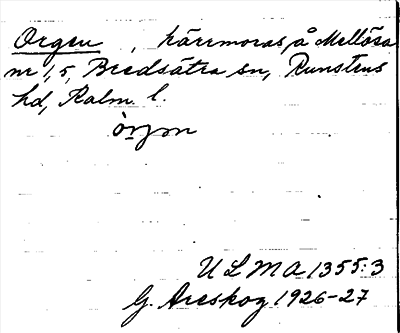 Orgen, kärrmoras, å Mellösa
nr 1, 5, Bredsätra sn, Runstens
hd, Kalm. l.
ULMA 1355:3
G. Areskog 1926-27